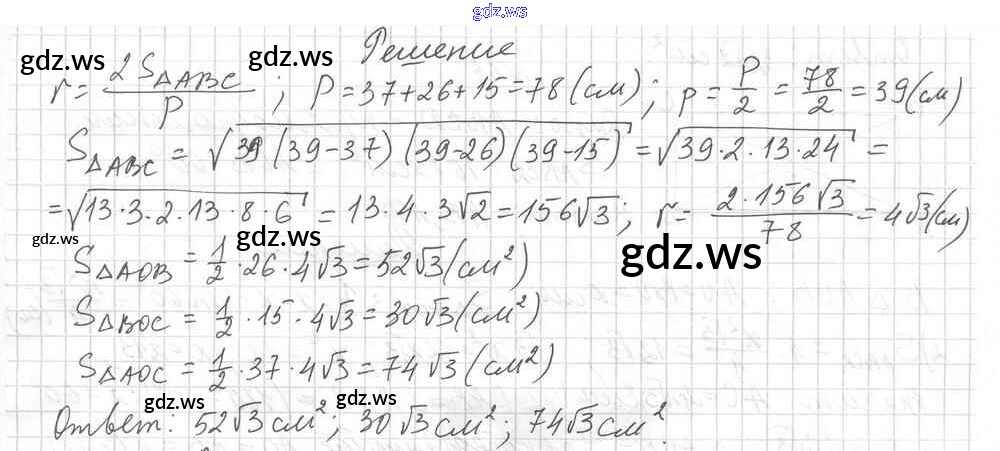 gdz.ws
Решение
gdz.ws gdz.ws
r = 2S△ABC / P ; P = 37+26+15 = 78 (см) ; p = P/2 = 78/2 = 39 (см)
gdz.ws
S△ABC = √39 (39-37) (39-26) (39-15) = √39·2·13·24 =
= √13·3·2·13·8·6 = 13·4·3√2 = 156√3 ; r = 2·156√3 / 78 = 4√3 (см)
gdz.ws gdz.ws gdz.ws
S△AOB = 1/2 · 26 · 4√3 = 52√3 (см²)
S△BOC = 1/2 · 15 · 4√3 = 30√3 (см²)
S△AOC = 1/2 · 37 · 4√3 = 74√3 (см²)
gdz.ws gdz.ws
Ответ: 52√3 см² ; 30√3 см² ; 74√3 см².